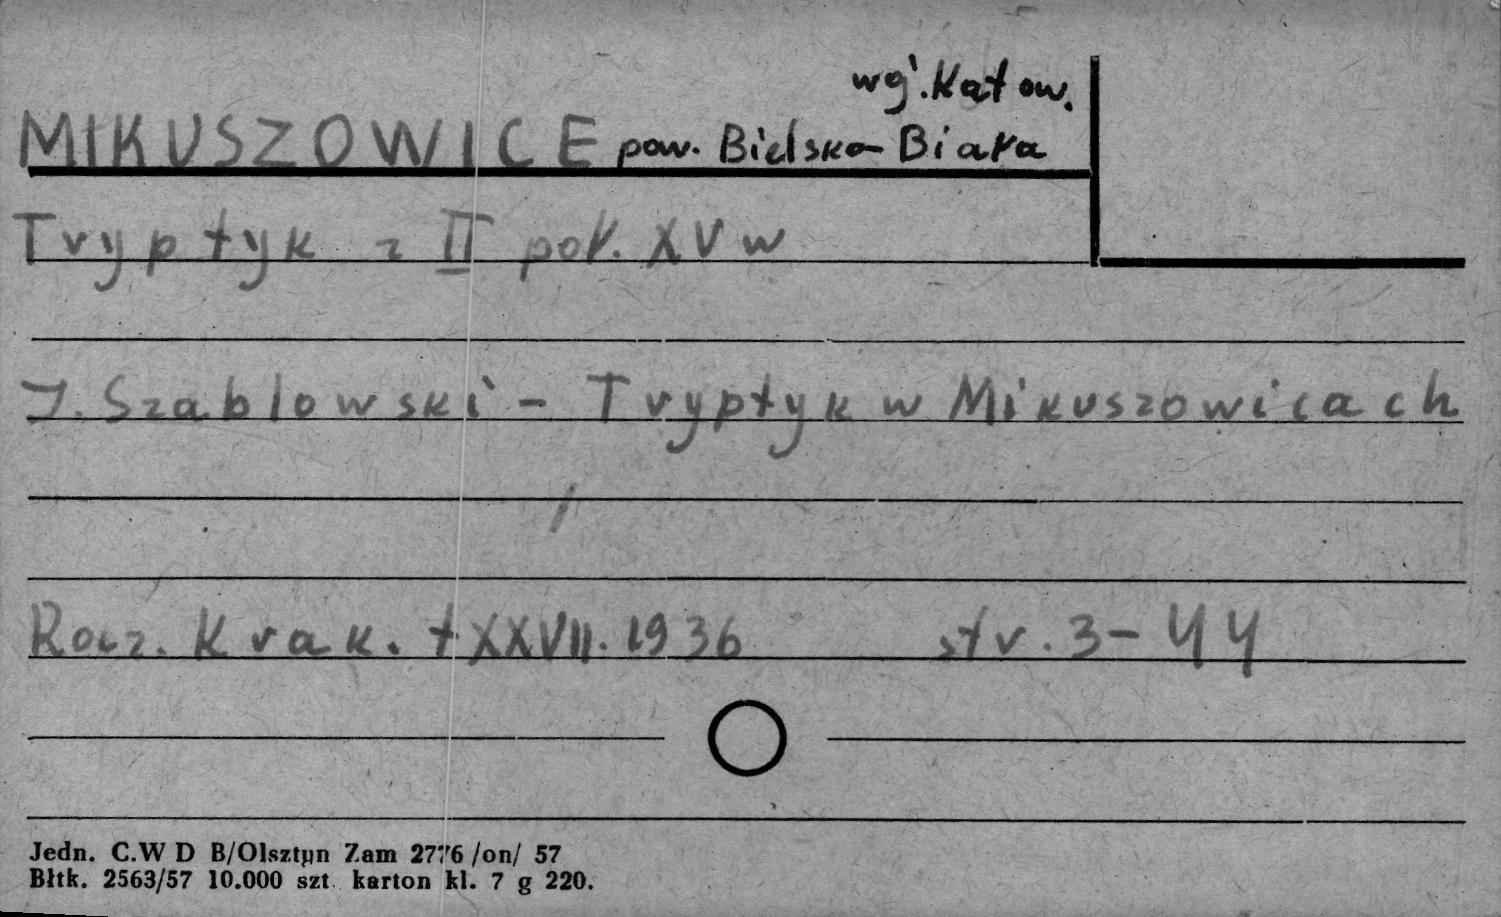 woj. Katow.
MIKUSZOWICE pow. Bielsko-Biała
Tryptyk z II poł. XV w
J. Szablowski - Tryptyk w Mikuszowicach
Rocz. Krak. t XXVII. 1936 str. 3-44
Jedn. C.W D B/Olsztyn Zam 2776 /on/ 57
Błtk. 2563/57 10.000 szt. karton kl. 7 g 220.